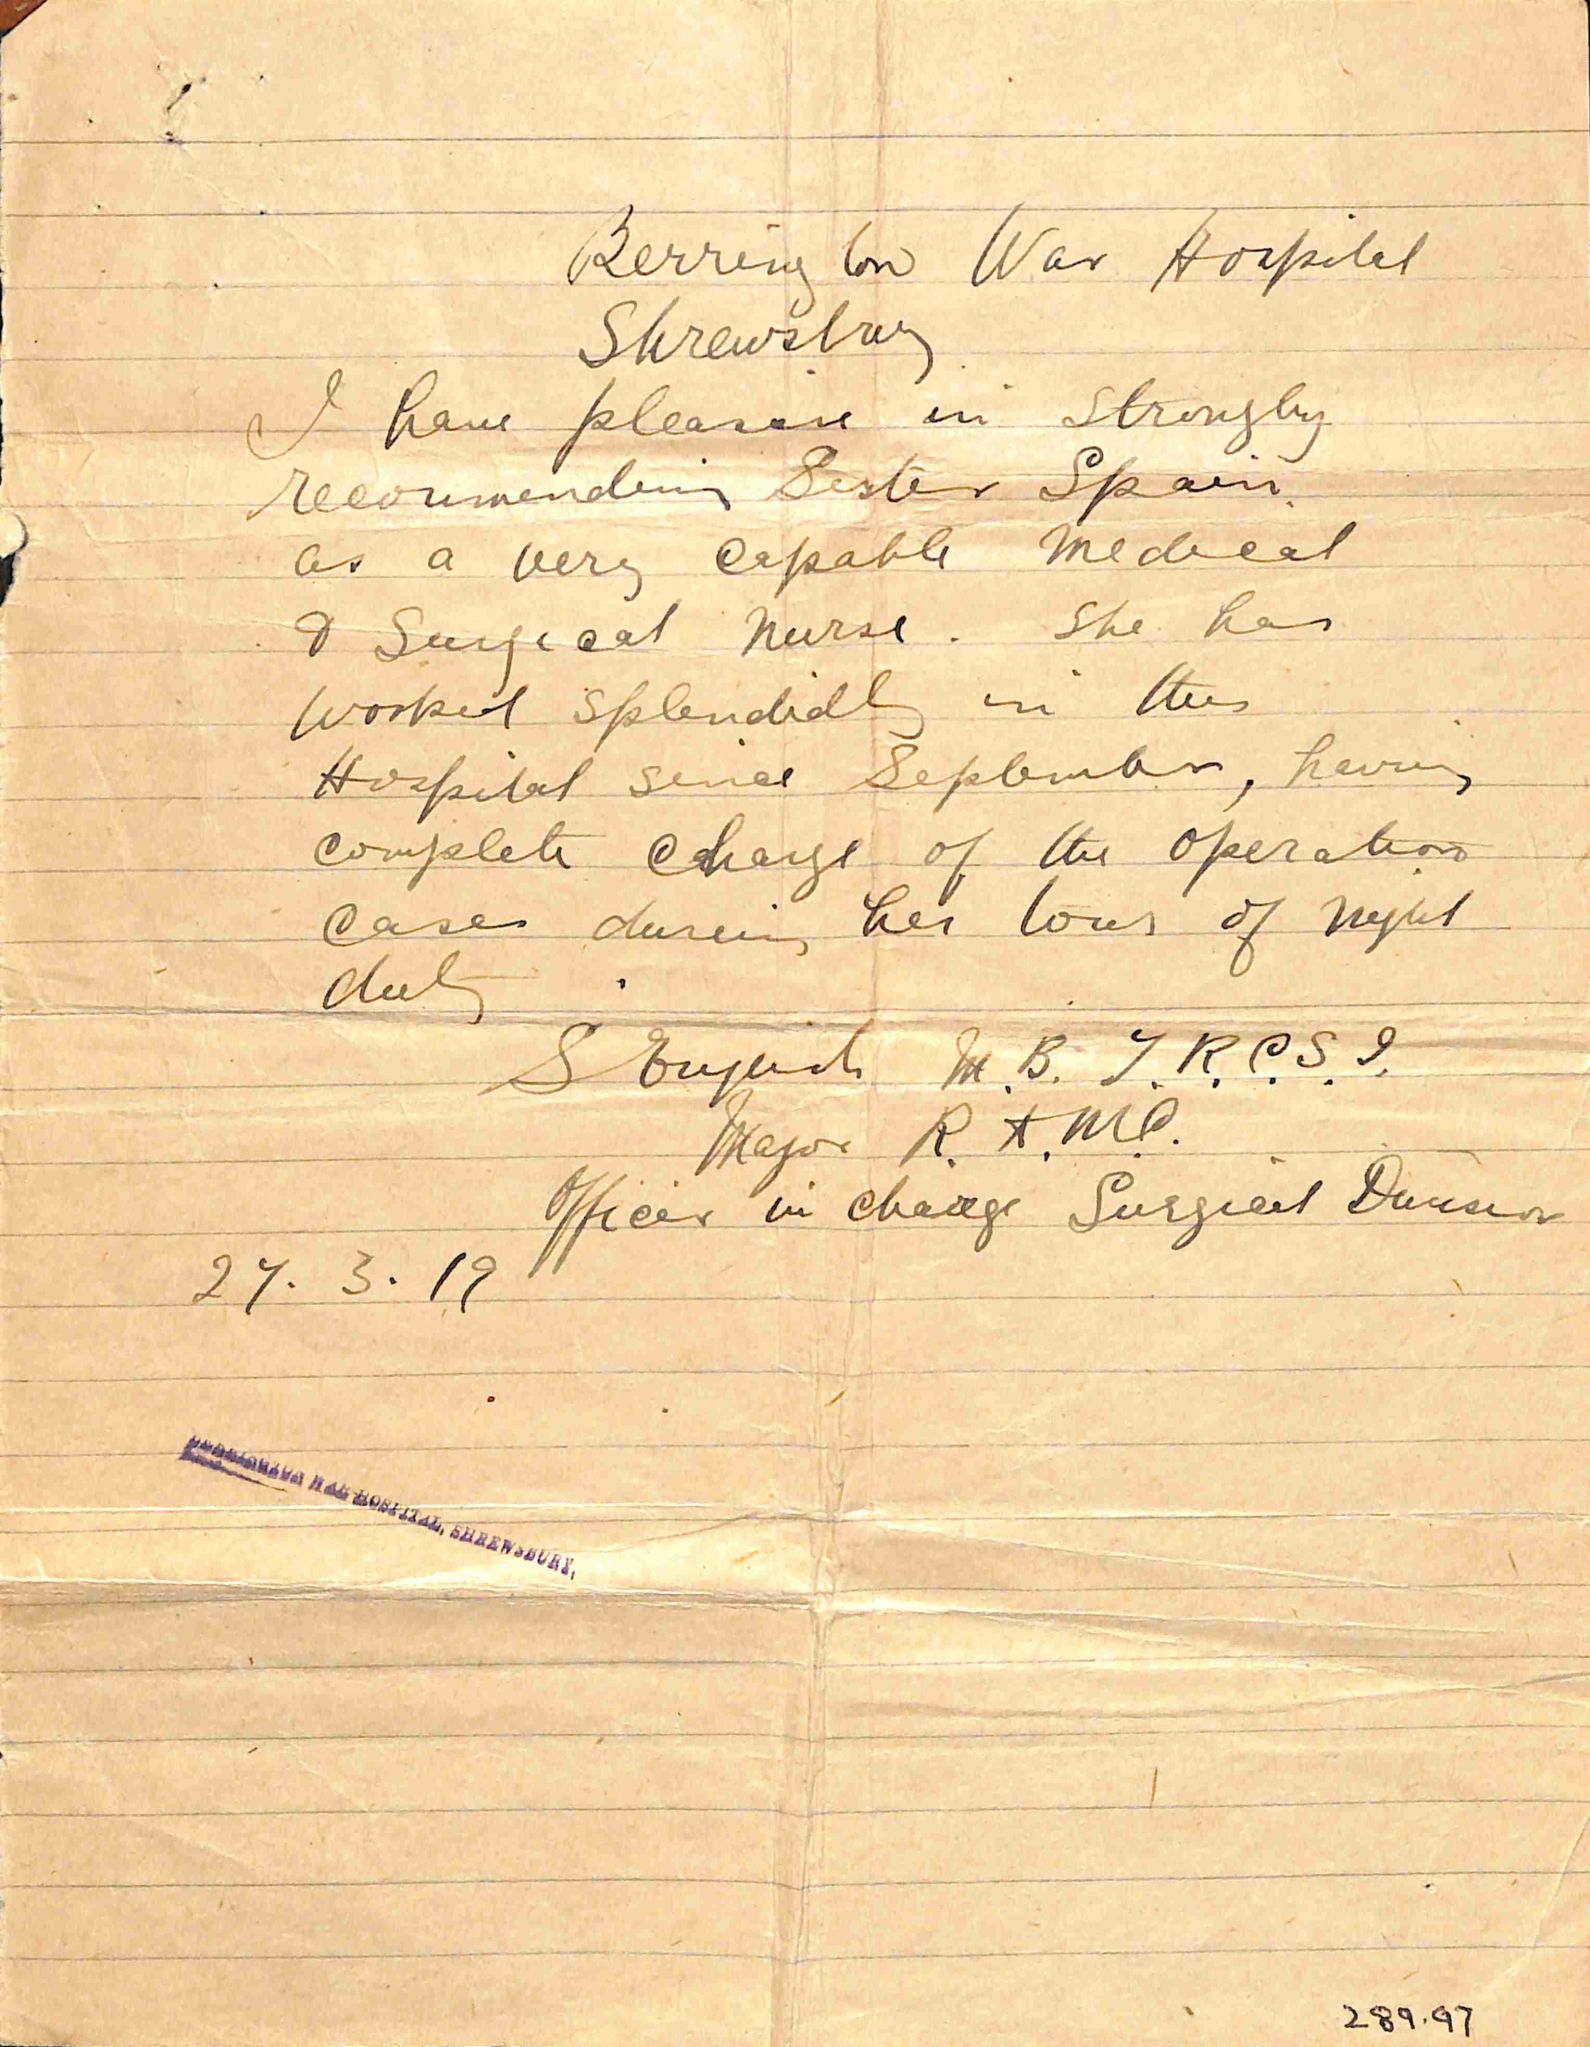 Berrington War Hospital
Shrewsbury
I have pleasure in strongly
recommending Sister Spain
as a very capable medical
& Surgical nurse. She has
worked splendidly in this
Hospital since September, having
complete charge of the operation
cases during her tour of night
duty.
S English M.B. F.R.C.S.I.
Major R.A.M.C.
Officer in charge Surgical Division
27.3.19
BERRINGTON WAR HOSPITAL, SHREWSBURY.
289.97